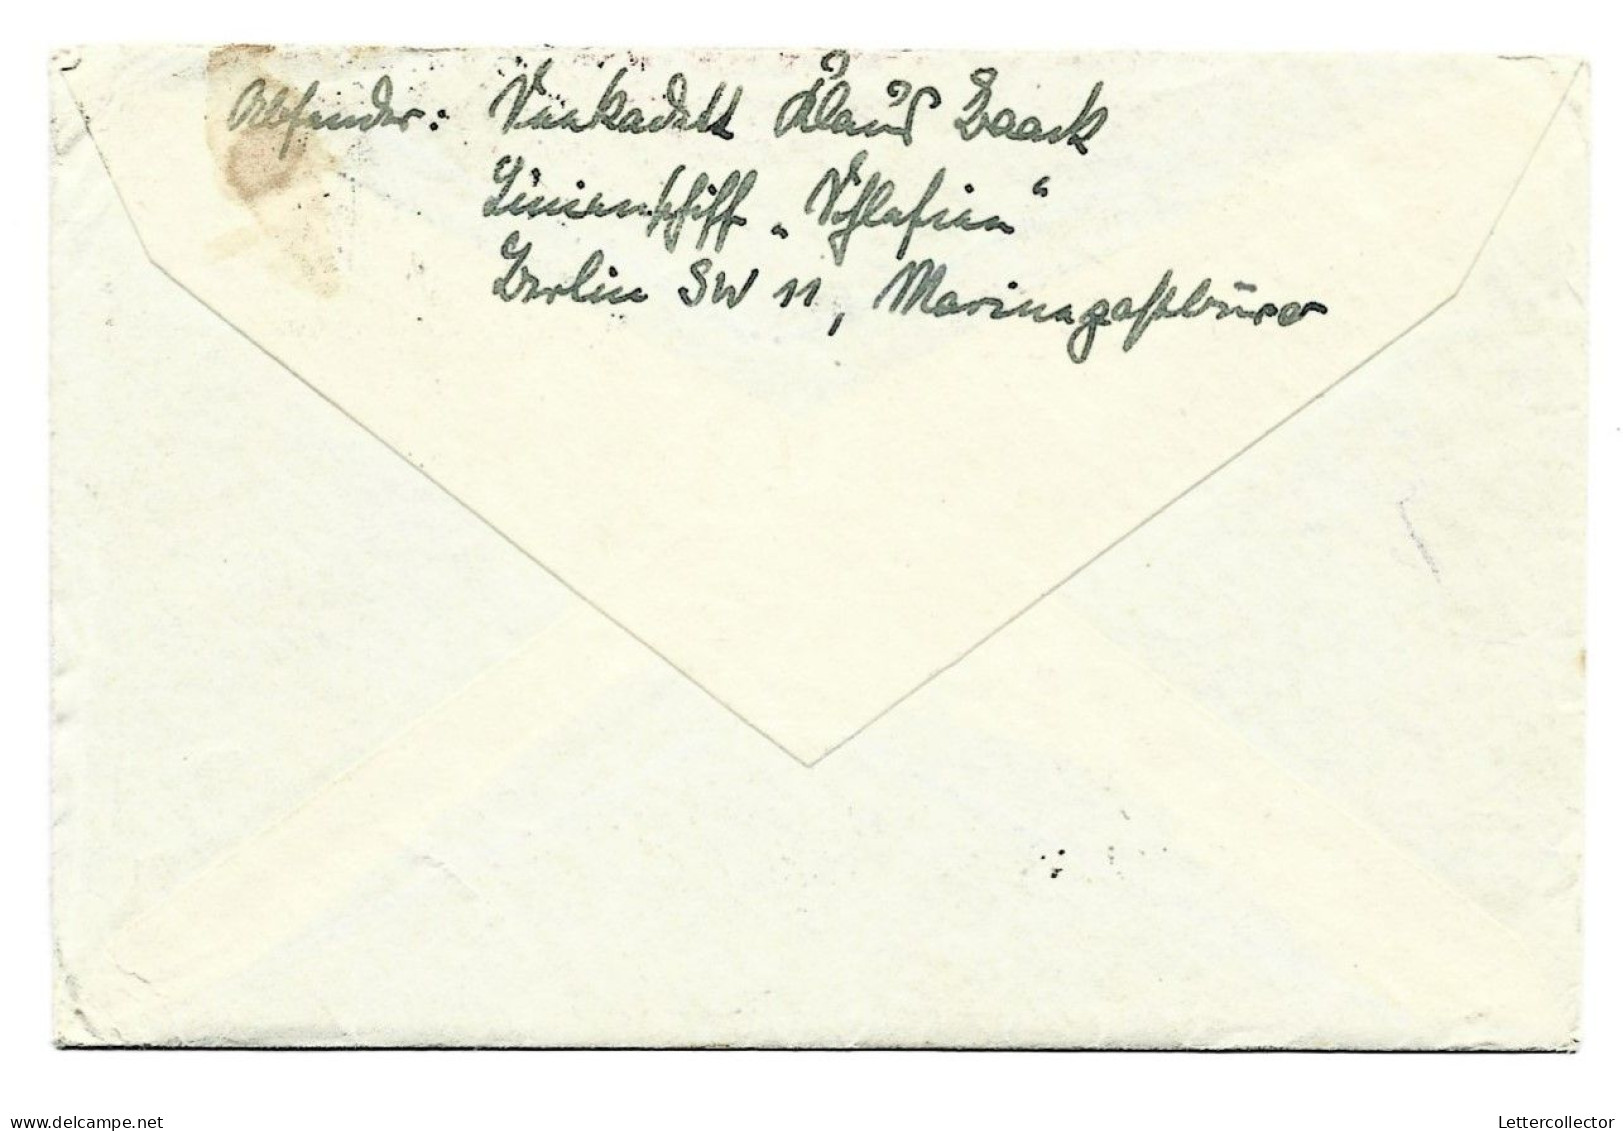 Absender: Seekadett Klaus Baack
Linienschiff „Schlesien“
Berlin SW 11, Marinepostbüro
delcampe.net
Lettercollector